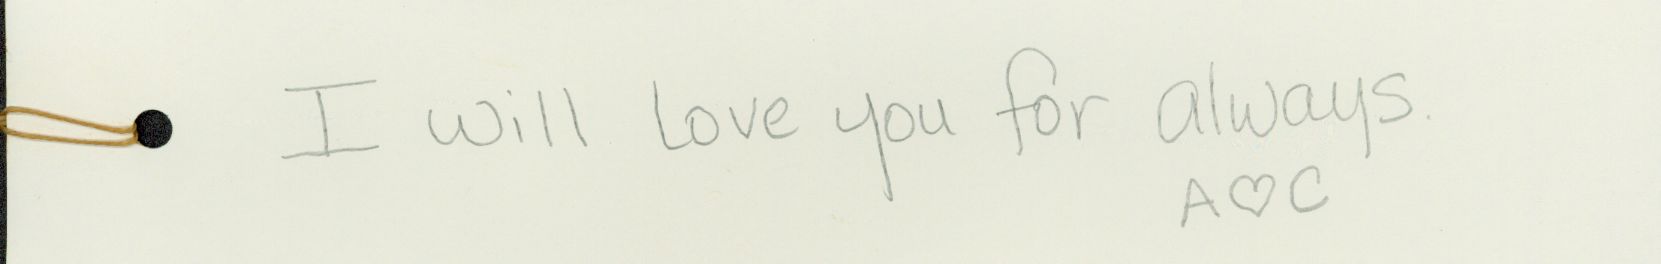 I will love you for always.
A♡C